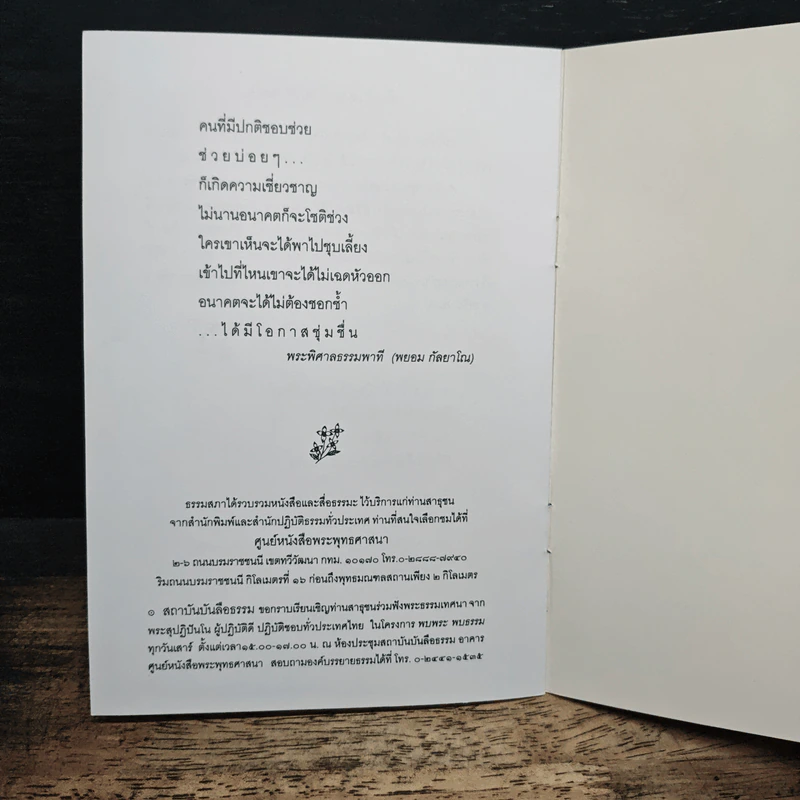 คนที่มีปกติชอบช่วย
ช่วยบ่อยๆ...
ก็เกิดความเชี่ยวชาญ
ไม่นานอนาคตก็จะโชติช่วง
ใครเขาเห็นจะได้พาไปชุบเลี้ยง
เข้าไปที่ไหนเขาจะได้ไม่เฉดหัวออก
อนาคตจะได้ไม่ต้องชอกช้ำ
...ได้มีโอกาสชุ่มชื่น
พระพิศาลธรรมพาที (พยอม กัลยาโณ)
ธรรมสภาได้รวบรวมหนังสือและสื่อธรรมะ ไว้บริการแก่ท่านสาธุชน
จากสำนักพิมพ์และสำนักปฏิบัติธรรมทั่วประเทศ ท่านที่สนใจเลือกชมได้ที่
ศูนย์หนังสือพระพุทธศาสนา
๒-๖ ถนนบรมราชชนนี เขตทวีวัฒนา กทม. ๑๐๑๗๐ โทร.๐-๒๘๘๘-๗๙๔๐
ริมถนนบรมราชชนนี กิโลเมตรที่ ๑๖ ก่อนถึงพุทธมณฑลสถานเพียง ๒ กิโลเมตร
๏ สถาบันบันลือธรรม ขอกราบเรียนเชิญท่านสาธุชนร่วมฟังพระธรรมเทศนา จาก
พระสุปฏิปันโน ผู้ปฏิบัติดี ปฏิบัติชอบทั่วประเทศไทย ในโครงการ พบพระ พบธรรม
ทุกวันเสาร์ ตั้งแต่เวลา๑๕.๐๐-๑๗.๐๐ น. ณ ห้องประชุมสถาบันบันลือธรรม อาคาร
ศูนย์หนังสือพระพุทธศาสนา สอบถามองค์บรรยายธรรมได้ที่ โทร. ๐-๒๔๔๑-๑๕๓๕